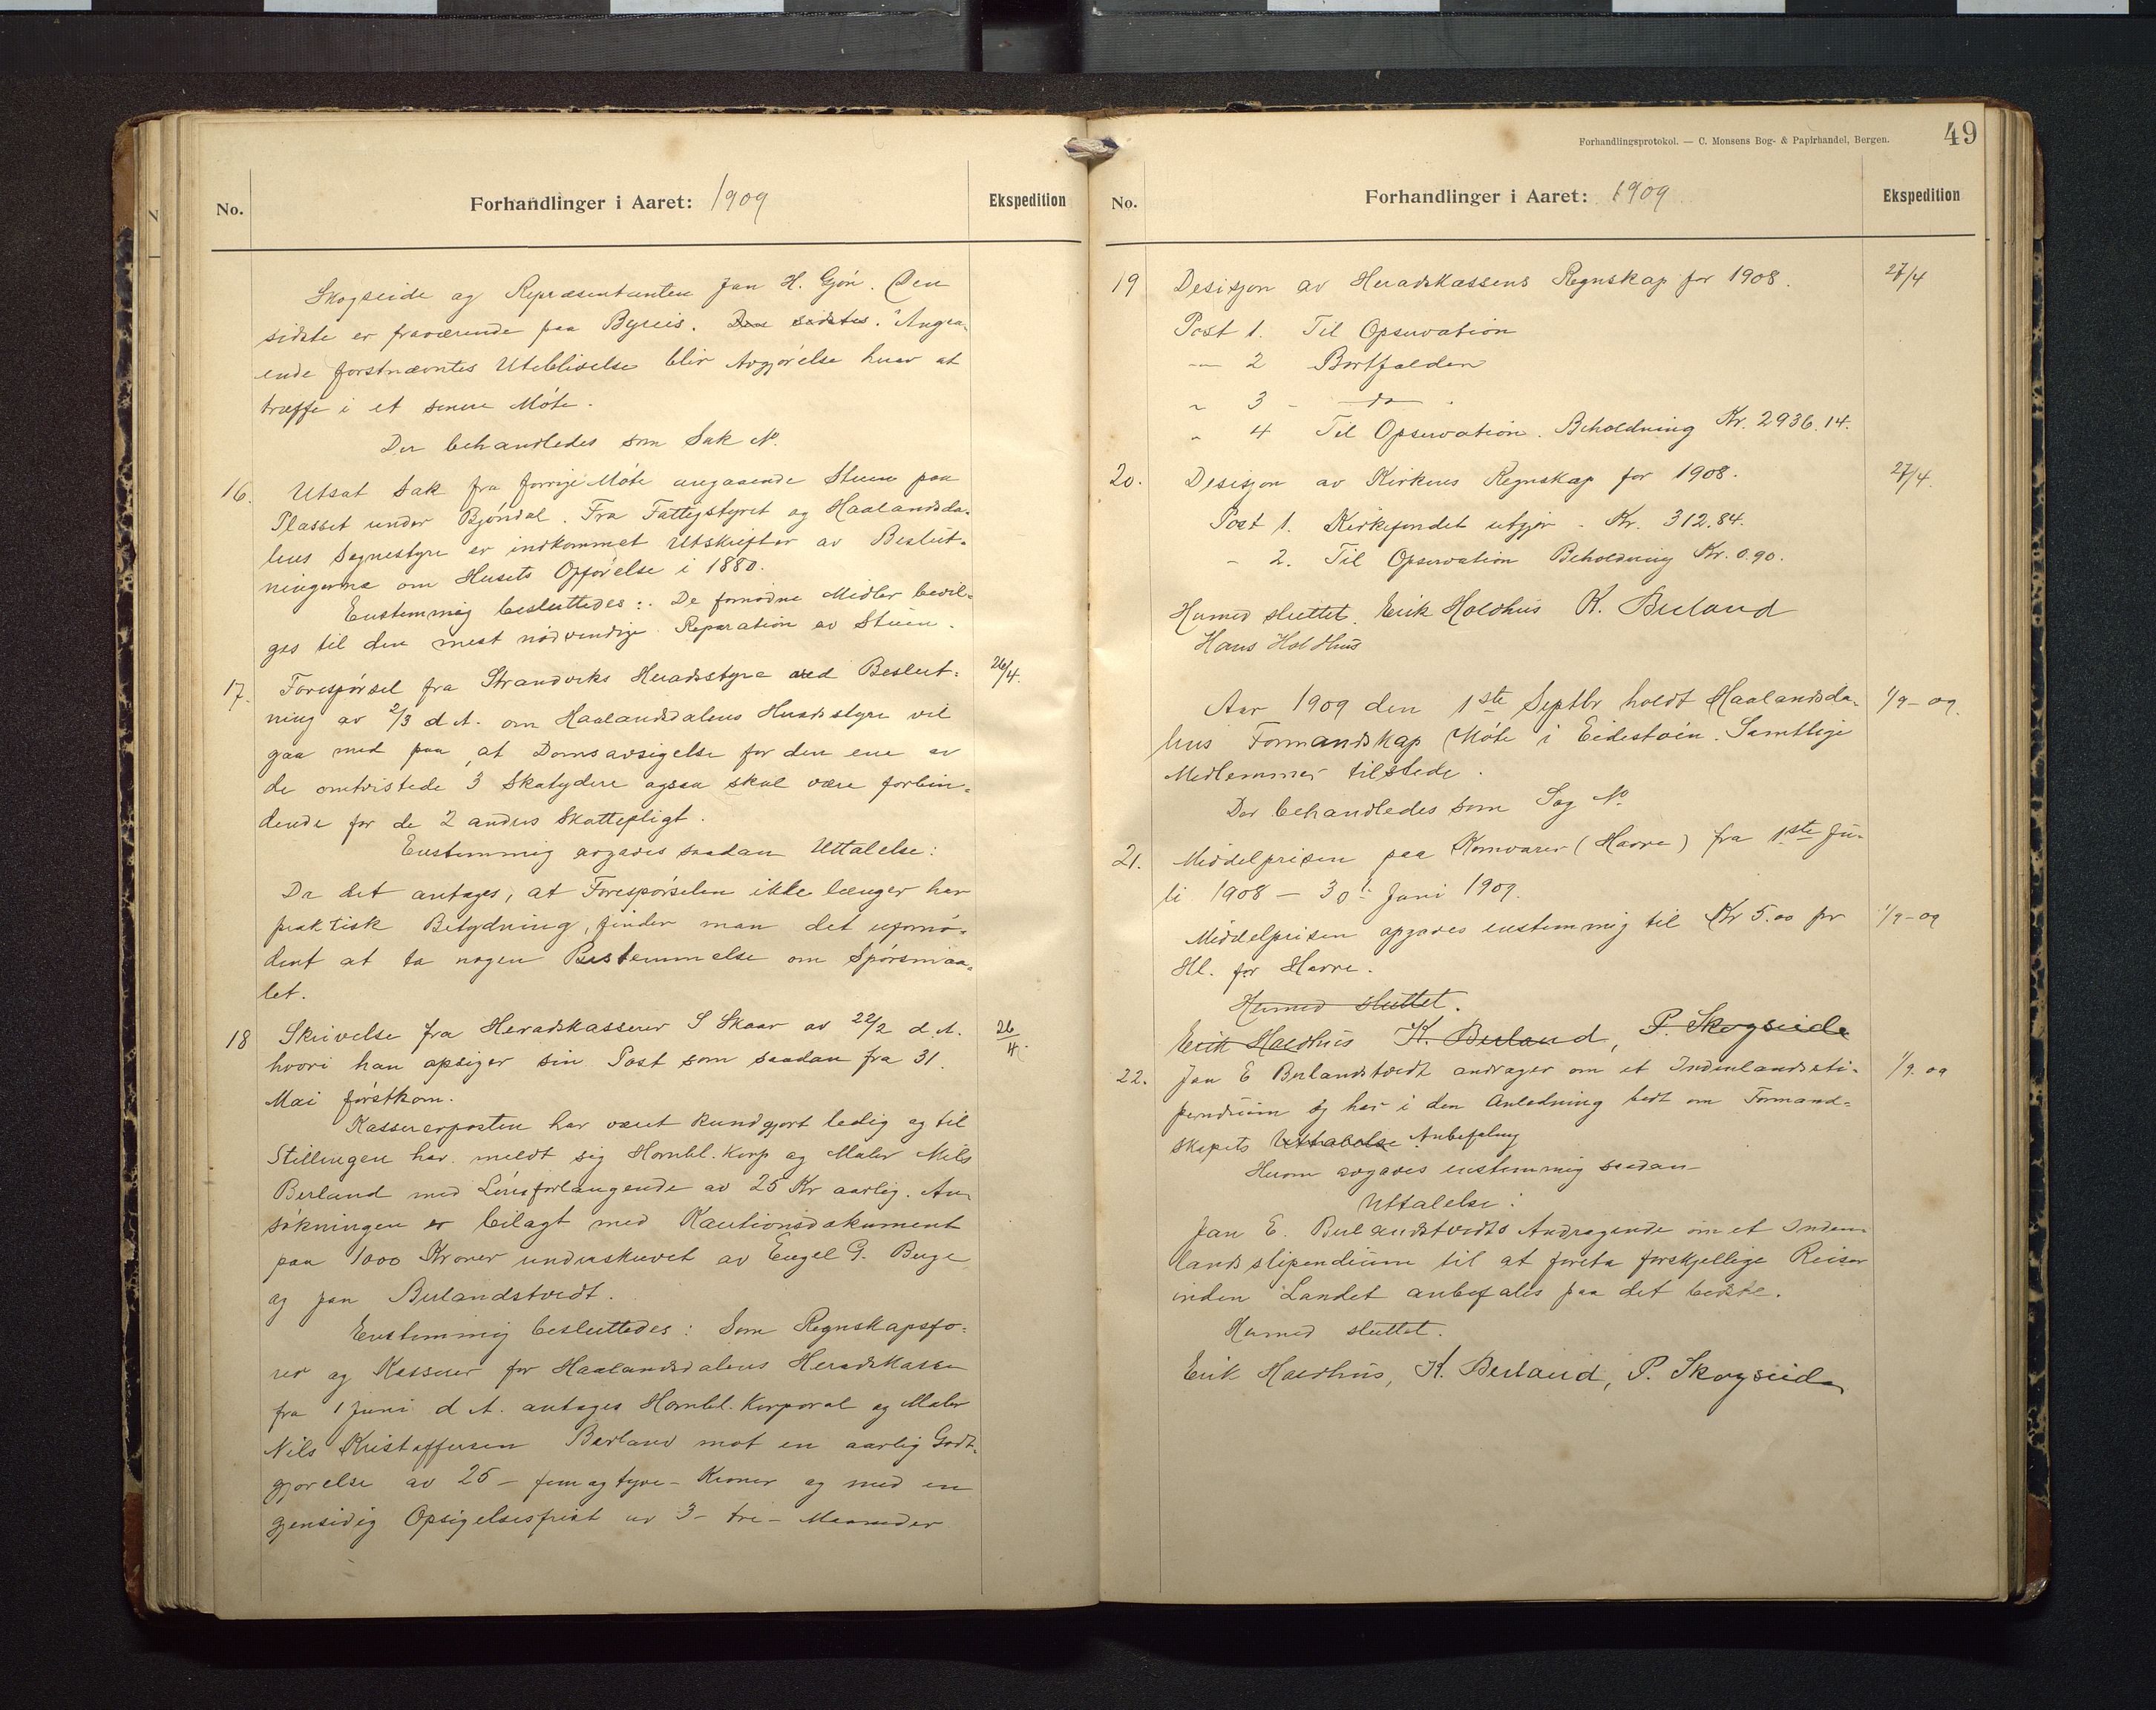 No.
Forhandlinger i Aaret: 1909
Ekspedition
Skogseide og Repræsentanten Jan H. Gjøn. Den
sidste er fraværende paa Byreis. Den sidstes. Angaa-
ende førstnævntes Uteblivelse blir Avgjørelse herav at
træffe i et senere Møte.
Der behandledes som Sak No.
16. Utsat Sak fra forrige Møte angaaende Stuen paa
Plasset under Bjøndal. Fra Fattigstyret og Haalandsda-
lens Sognestyre er indkommet Utskrifter av Beslut-
ningerne om Husets Opførelse i 1880.
Enstemmig besluttedes: De fornødne Midler bevil-
ges til den mest nødvendige Reparation av Stuen.
17. Forespørsel fra Strandviks Heradsstyre ved Beslut- 26/4.
ning av 2/3 d. A. om Haalandsdalens Heradsstyre vil
gaa med paa, at Domsavsigelse for den ene av
de omtvistede 3 Skatydere ogsaa skal være forbin-
dende for de 2 andres Skattepligt.
Enstemmig avgaves saadan Uttalelse:
Da det antages, at Forespørselen ikke længer har
praktisk Betydning, finder man det ufornø-
dent at ta nogen Bestemmelse om Spørsmaa-
let.
18 Skrivelse fra Heradskasserer S Skaar av 22/2 d. A. 26/4.
hvori han opsiger sin Post som saadan fra 31.
Mai førstkom.
Kassererposten har været kundgjort ledig og til
Stillingen har meldt sig Hornbl. Korp og Maler Nils
Berland med Lønsforlangende av 25 Kr aarlig. An-
søkningen er bilagt med Kautionsdokument
paa 1000 Kroner underskrevet av Engel G. Berge
og Jan Berlandstvedt.
Enstemmig besluttedes: Som Regnskapsfø-
rer og Kasserer for Haalandsdalens Heradskasse
fra 1 Juni d. A. antages Hornbl. Korporal og Maler
Nils Kristoffersen Berland mot en aarlig Godt-
gjørelse av 25 – fem og tyve – Kroner og med en
gjensidig Opsigelsesfrist av 3 – tre – Maaneder
Forhandlingsprotokol. — C. Monsens Bog- & Papirhandel, Bergen.
49
No.
Forhandlinger i Aaret: 1909
Ekspedition
19 Desisjon av Heradskassens Regnskap for 1908. 27/4
Post 1. Til Opservation
— 2 Bortfalden
" 3 - do
" 4 Til Opservation. Beholdning Kr. 2936.14.
20. Desisjon av Kirkens Regnskap for 1908. 27/4.
Post 1. Kirkefondet utgjør - Kr. 312.84.
- 2. Til Opservation Beholdning Kr. 0.90.
Hermed sluttet. Erik Holdhus K. Berland
Hans Holdhus
Aar 1909 den 1ste Septbr holdt Haalandsda- 1/9-09.
lens Formandskap Møte i Eidestøen. Samtlige
Medlemmer tilstede.
Der behandledes som Sag No
21. Middelprisen paa Kornvarer (Havre) fra 1ste Ju-
li 1908 – 30t Juni 1909.
Middelprisen opgaves enstemmig til Kr 5.00 pr 1/9-09
Hl. for Havre.
Hermed sluttet.
Erik Holdhus K. Berland, P. Skogseide
22. Jan E Berlandstvedt andrager om et Indenlandssti- 1/9.09
pendium og har i den Anledning bedt om Formand-
skapets Uttalelse Anbefaling
Herom avgaves enstemmig saadan
Uttalelse:
Jan E. Berlandstvedts Andragende om et Inden-
landsstipendium til at foreta forskjellige Reiser
inden Landet anbefales paa det bedste.
Hermed sluttet.
Erik Holdhus, K. Berland, P. Skogseide